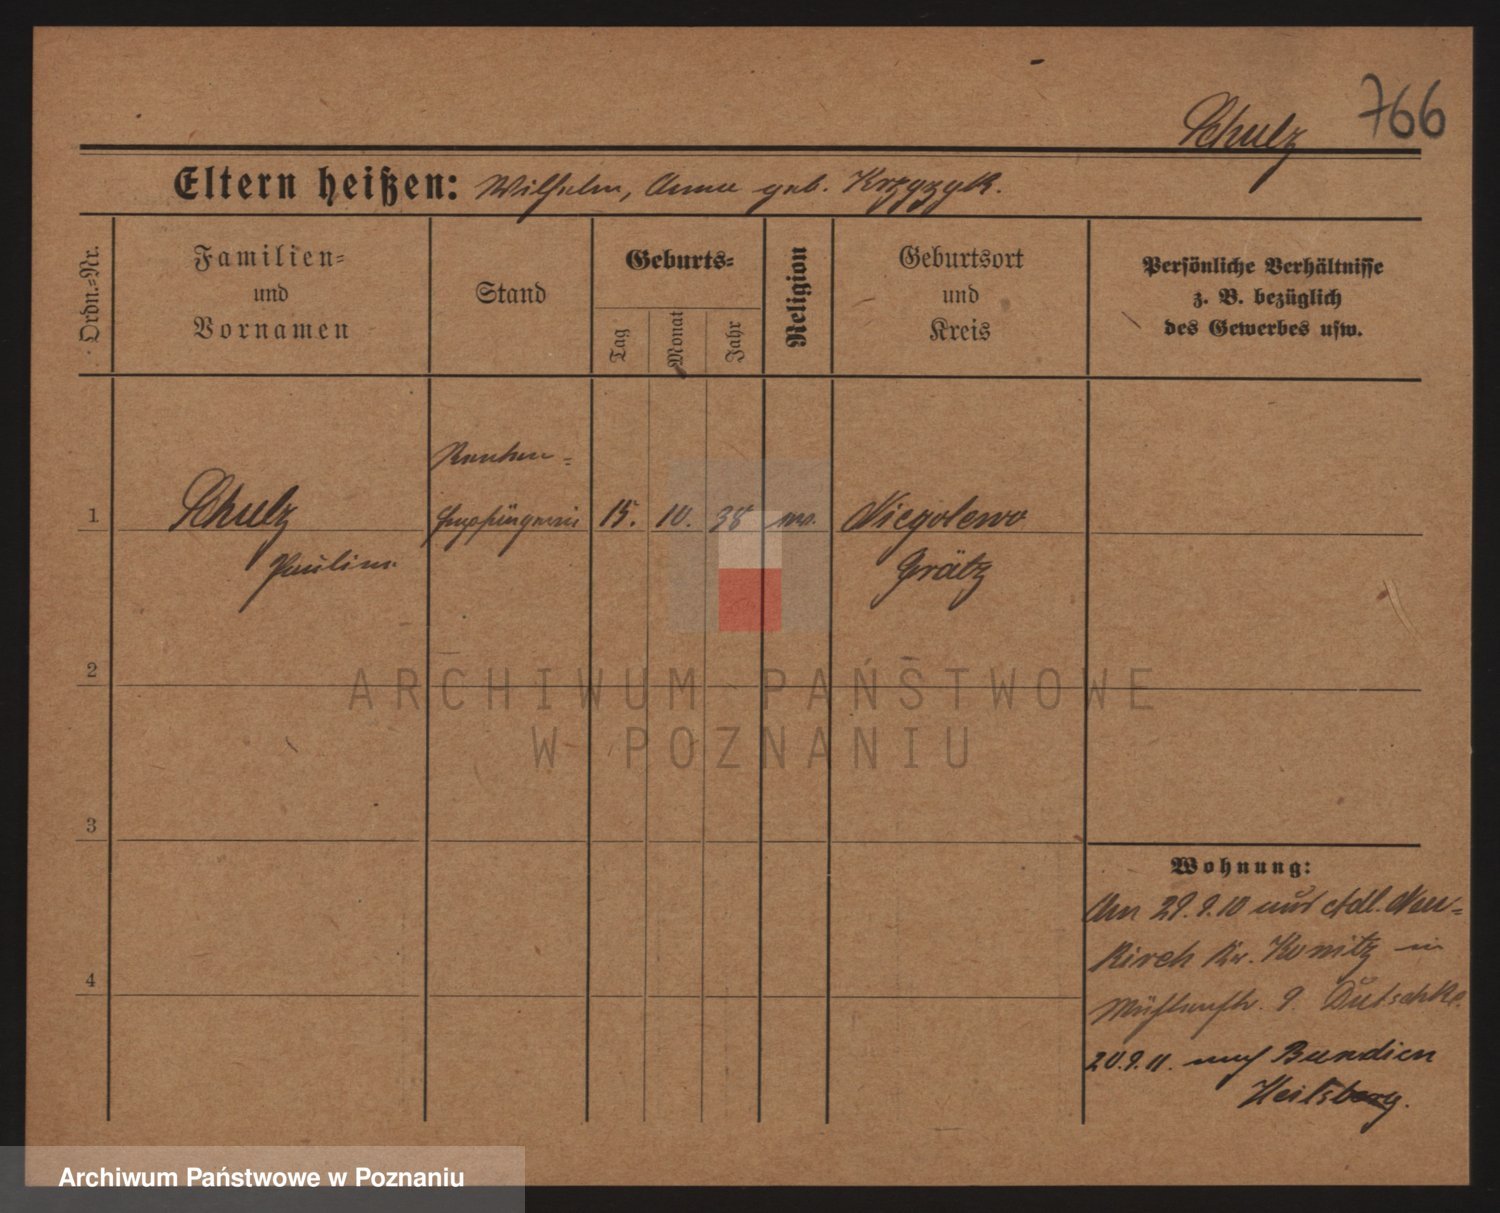 Schulz 766
Eltern heißen: Wilhelm, Anna geb. Krzyzyk.
Ordn.-Nr.
Familien-
und
Vornamen
Stand
Geburts-
Tag
Monat
Jahr
Religion
Geburtsort
und
Kreis
Persönliche Verhältnisse
z. B. bezüglich
des Gewerbes usw.
Renten-
1 Schulz empfängerin 15. 10. 38 Niegolewo
Pauline Grätz
2
ARCHIWUM PAŃSTWOWE
W POZNANIU
3
Wohnung:
Am 29.9.10 aus Adl. Neu-
kirch Kr. Konitz in
Mühlenstr. 9.
4
20.9.11. nach Bundien
Heilsberg.
Archiwum Państwowe w Poznaniu